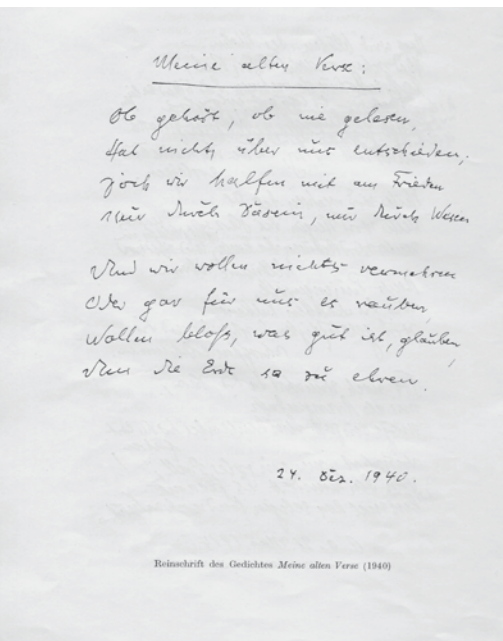 Meine alten Verse:
Ob gehört, ob nie gelesen,
Hat nichts über uns entschieden;
Doch wir halfen mit am Frieden
Nur durch Dasein, nur durch Wesen
Und wir wollen nichts vermehren
Oder gar für uns es rauben,
Wollen bloß, was gut ist, glauben,
Um die Erde so zu ehren.
24. Dez. 1940.
Reinschrift des Gedichtes Meine alten Verse (1940)